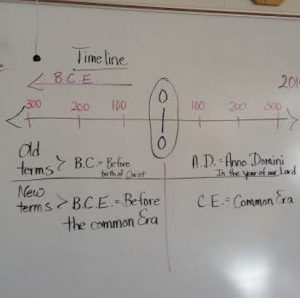 Timeline
B.C.E.
201
300 200 100 0 100 200 300
0
Old terms > B.C. = Before birth of Christ
A.D. = Anno Domini
In the year of our Lord
New terms > B.C.E. = Before the common Era
C.E. = Common Era